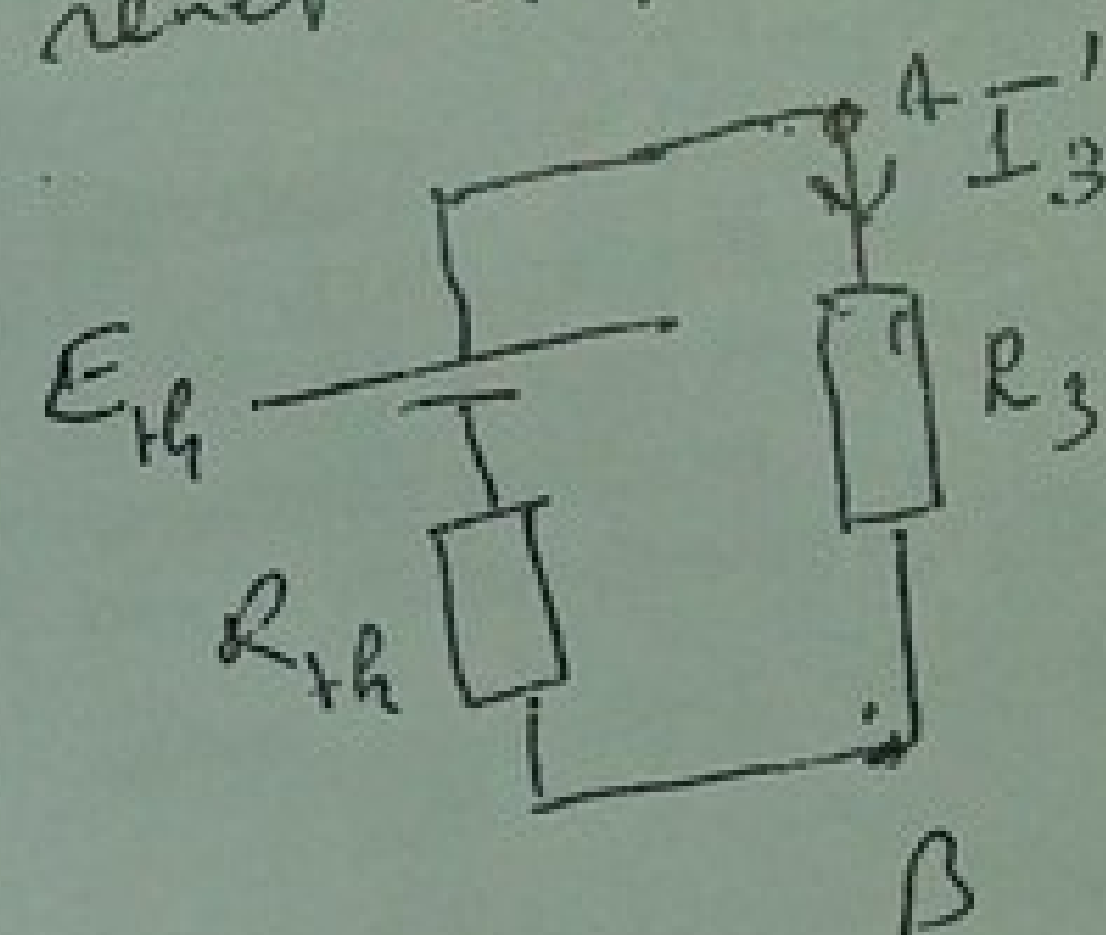 A I'₃
E_th
R₃
R_th
B